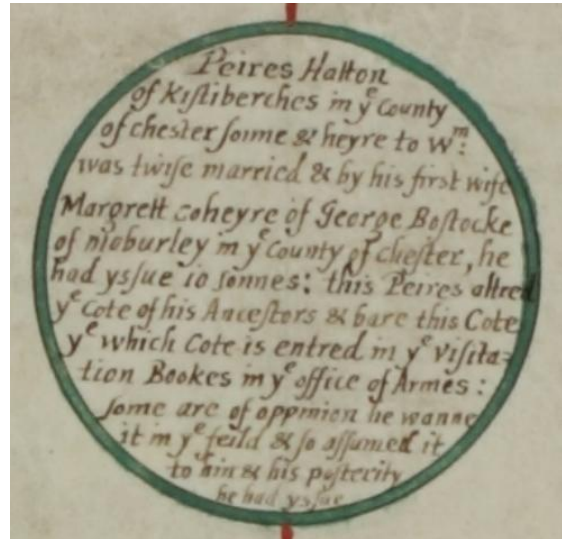 Peires Hatton
of Kistiberches in yᵉ County
of chester sonne & heyre to Wᵐ:
was twise married & by his first wife
Margrett coheyre of George Bostocke
of moburley in yᵉ County of chester, he
had yssue 10 sonnes: this Peires altred
yᵉ Cote of his Ancestors & bare this Cote
yᵉ which Cote is entred in yᵉ Visita=
tion Bookes in yᵉ office of Armes:
some are of oppinion he wanne
it in yᵉ feild & so assumed it
to him & his posterity
he had yssue